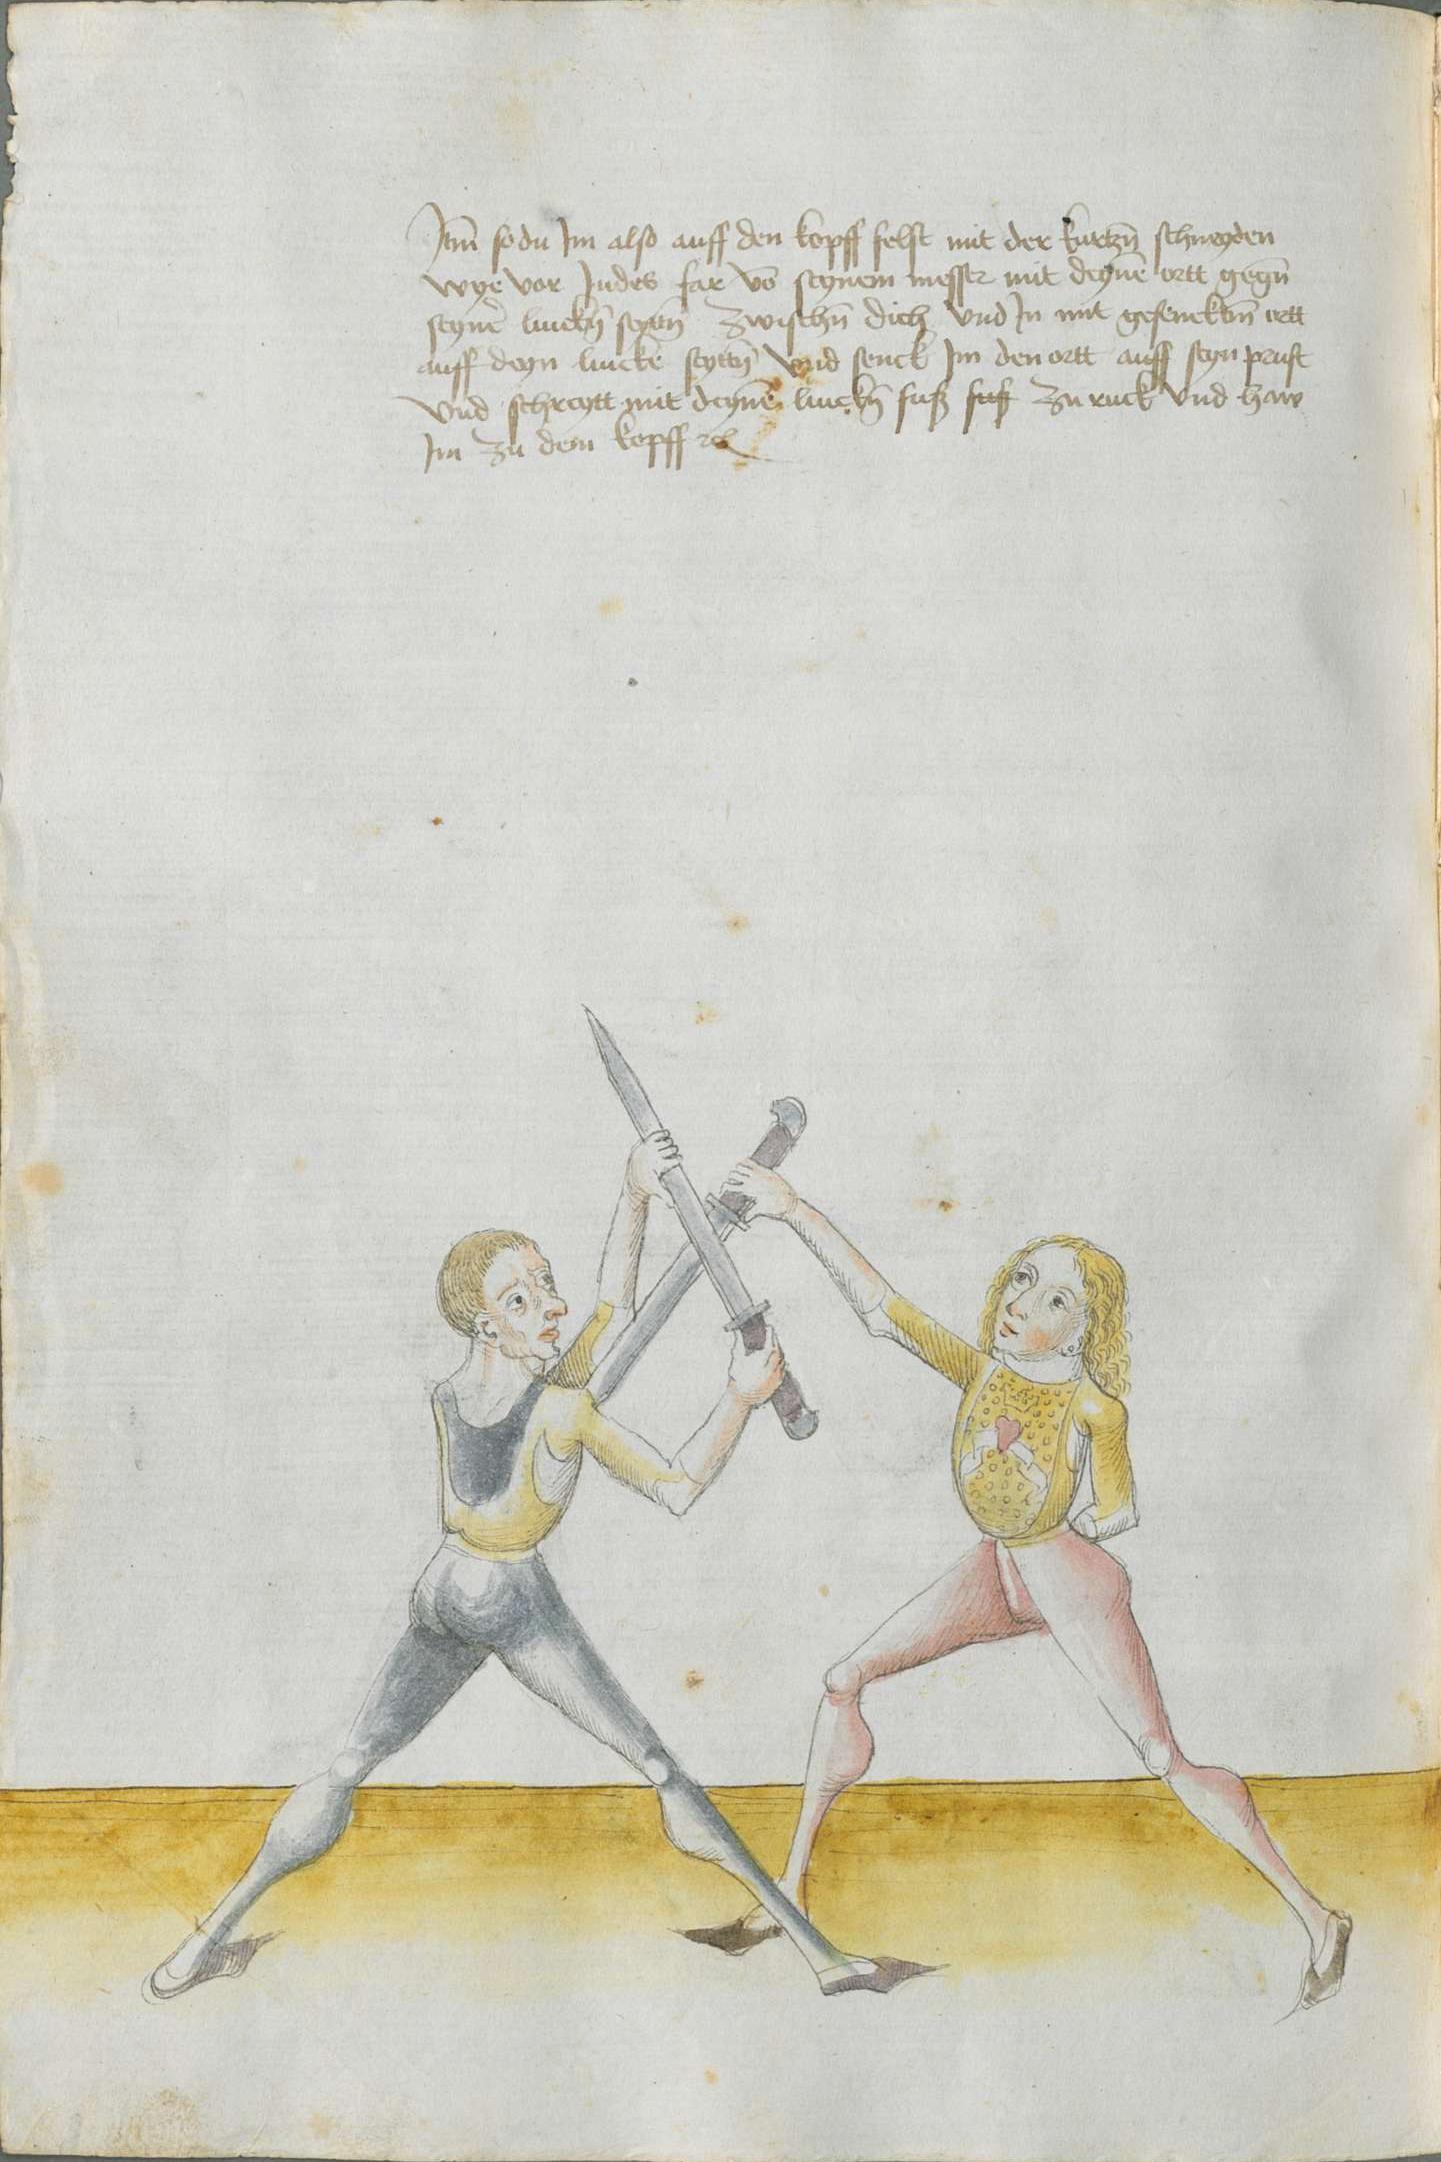 Itm̄ so du Im also auff den kopff felst mit der kurtzn̄ schneyden
wye vor Indes far vō seynem messer mit deynē ortt gegn̄
seynē lincḱn̄ seytn̄ Zwischn̄ dich vnd In mit gesencktm̄ ortt
auff deyn lincke seyttn̄ vnd senck Im den ortt auff seyn prust
vnd schreytt mit deynē linckn̄ fuß fuß Zu ruck vnd haw
Im zu dem kopff